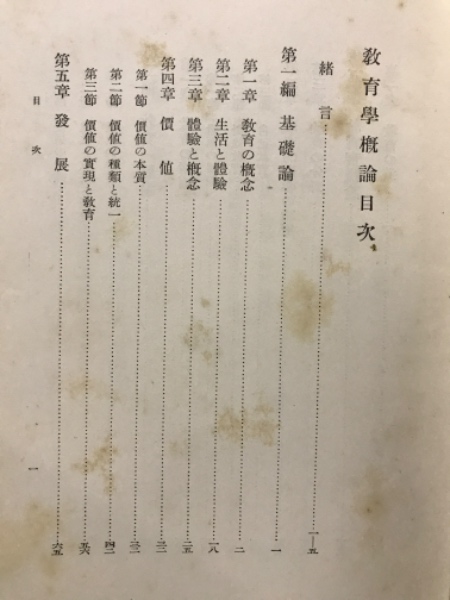 教育學概論目次
緒言……一—五
第一編 基礎論……一
第一章 教育の概念……二
第二章 生活と體驗……一八
第三章 體驗と概念……二五
第四章 價値……三三
第一節 價値の本質……三三
第二節 價値の種類と統一……四二
第三節 價値の實現と教育……五六
第五章 發展……六五
目次 一